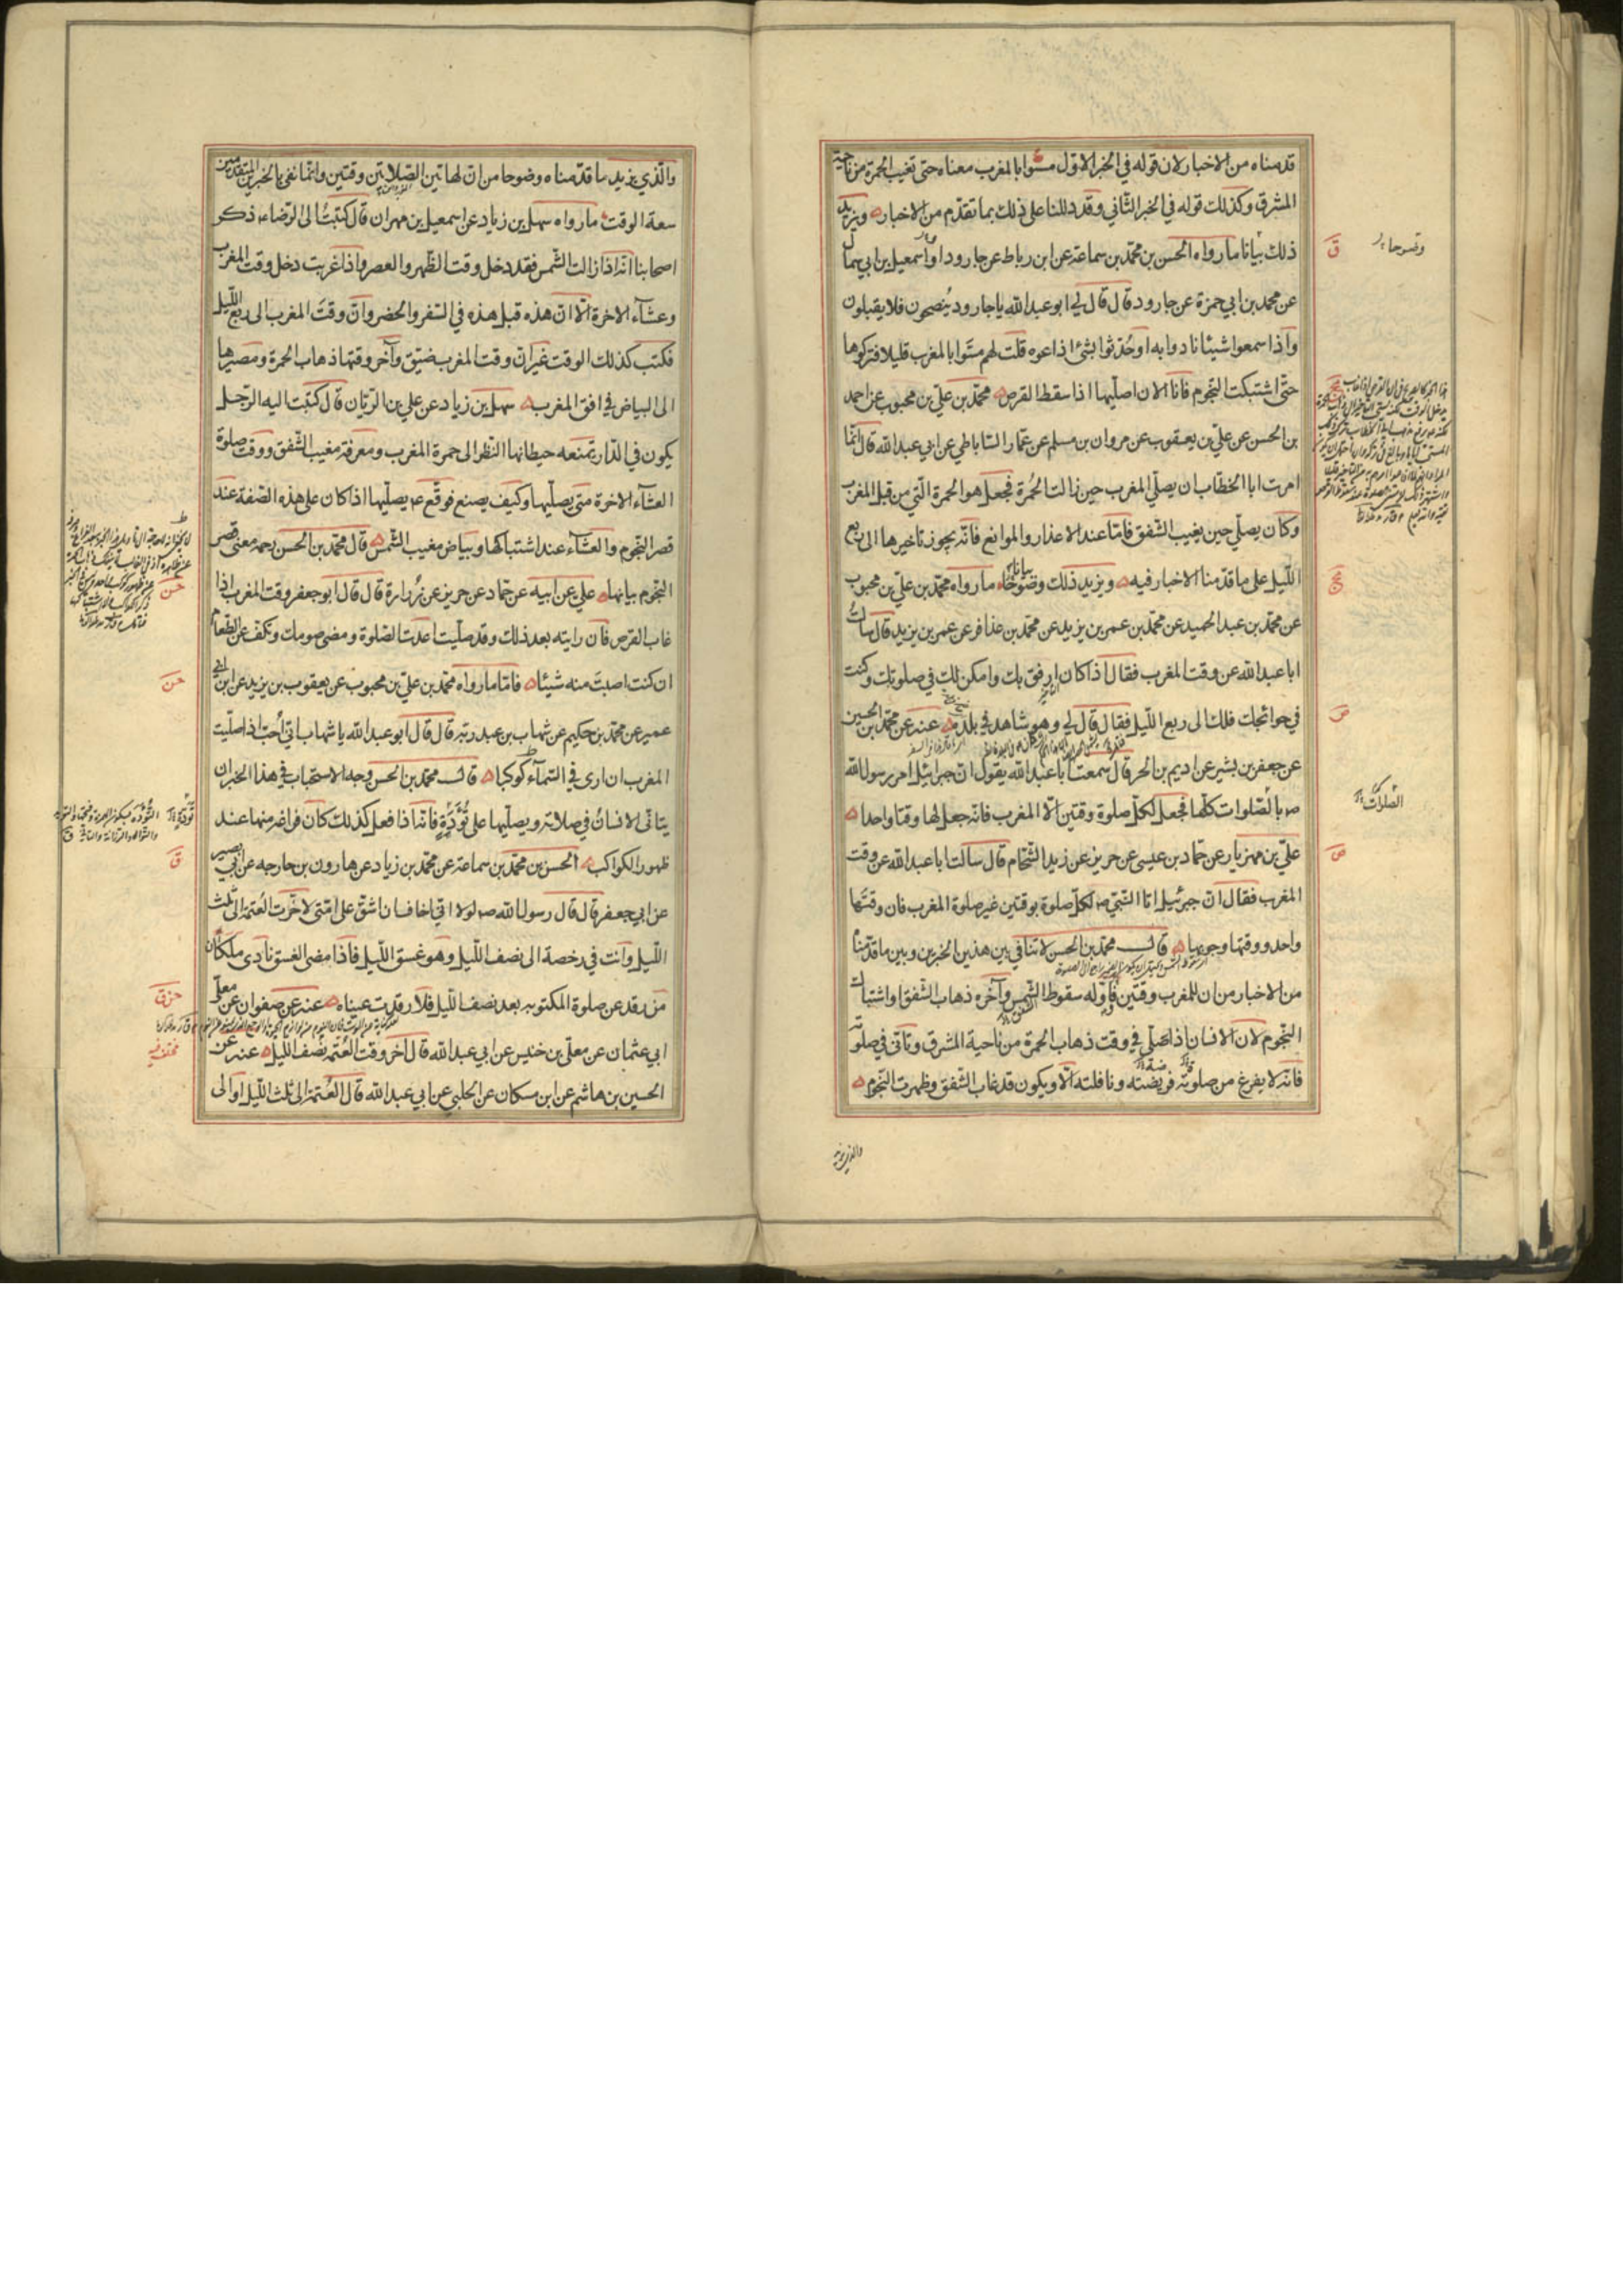 قدمناه من الاخبار لان قوله في الخبر الاول مسّوا بالمغرب معناه حتى تغيب الحمرة من ناحية
المشرق وكذلك قوله في الخبر الثاني وقد دللنا على ذلك بما تقدم من الاخبار ويزيد
ذلك بيانا ما رواه الحسن بن محمد بن سماعة عن ابن رباط عن جارود او اسمعيل بن ابي سمال
عن محمد بن ابي حمزة عن جارود قال قال لي ابو عبد الله يا جارود ينصحون فلا يقبلون
واذا سمعوا شيئا نادوا به او حدثوا بشئ اذاعوه قلت لهم مسّوا بالمغرب قليلا فتركوها
حتى اشتبكت النجوم فانا الان اصليها اذا سقط القرص محمد بن علي بن محبوب عن احمد
بن الحسن عن علي بن يعقوب عن مروان بن مسلم عن عمار الساباطي عن ابي عبد الله قال انما
امرت ابا الخطاب ان يصلي المغرب حين زالت الحمرة فجعل هو الحمرة التي من قبل المغرب
وكان يصلي حين يغيب الشفق فاما عند الاعذار والموانع فانه يجوز تاخيرها الى ربع
الليل على ما قدمنا الاخبار فيه ويزيد ذلك وضوحا ما رواه محمد بن علي بن محبوب
عن محمد بن عبد الحميد عن محمد بن عمر بن يزيد عن محمد بن عذافر عن عمر بن يزيد قال سالت
ابا عبد الله عن وقت المغرب فقال اذا كان ارفق بك وامكن لك في صلوتك وكنت
في حوائجك فلك الى ربع الليل فقال قال لي وهو شاهد في بلده عنه عن محمد بن الحسين
عن جعفر بن بشير عن اديم بن الحر قال سمعت ابا عبد الله يقول ان جبرائيل امر رسول الله
ص بالصلوات كلها فجعل لكل صلوة وقتين الا المغرب فانه جعل لها وقتا واحدا
علي بن مهزيار عن حماد بن عيسى عن حريز عن زيد الشحام قال سالت ابا عبد الله عن وقت
المغرب فقال ان جبرئيل اتا النبي ص لكل صلوة بوقتين غير صلوة المغرب فان وقتها
واحد ووقتها وجوبها قال محمد بن الحسن لا تنافي بين هذين الخبرين وبين ما قدمنا
من الاخبار من ان للمغرب وقتين فاوله سقوط الشمس وآخره ذهاب الشفق او اشتباك
النجوم لان الانسان اذا صلى في وقت ذهاب الحمرة من ناحية المشرق وتانى في صلوته
فانه لا يفرغ من صلوته فريضته ونافلته الا ويكون قد غاب الشفق وظهرت النجوم
وضوحا
الصلوات
والذي يزيد
والذي يزيد ما قدمناه وضوحا من ان لهاتين الصلاتين وقتين وانما نفي بالخبرين المتقدمين
سعة الوقت ما رواه سهل بن زياد عن اسمعيل بن مهران قال كتبت الى الرضا ع ذكر
اصحابنا انه اذا زالت الشمس فقد دخل وقت الظهر والعصر واذا غربت دخل وقت المغرب
وعشآء الاخرة الا ان هذه قبل هذه في السفر والحضر وان وقت المغرب الى ربع الليل
فكتب كذلك الوقت غير ان وقت المغرب ضيق وآخر وقتها ذهاب الحمرة ومصيرها
الى البياض في افق المغرب سهل بن زياد عن علي بن الريان قال كتبت اليه الرجل
يكون في الدار تمنعه حيطانها النظر الى حمرة المغرب ومعرفة مغيب الشفق ووقت صلوة
العشآء الاخرة متى يصليها وكيف يصنع فوقع ع يصليها اذا كان على هذه الصفة عند
قصر النجوم والعشآء عند اشتباكها وبياض مغيب الشمس قال محمد بن الحسن رحمه معنى قصر
النجوم بيانها علي عن ابيه عن حماد عن حريز عن زرارة قال قال ابو جعفر وقت المغرب اذا
غاب القرص فان رايته بعد ذلك وقد صليت اعدت الصلوة ومضى صومك وتكف عن الطعام
ان كنت اصبت منه شيئا فاما ما رواه محمد بن علي بن محبوب عن يعقوب بن يزيد عن ابن ابي
عمير عن محمد بن حكيم عن شهاب بن عبد ربه قال قال ابو عبد الله يا شهاب اني احب اذا صليت
المغرب ان ارى في السمآء كوكبا قال محمد بن الحسن وجه الاستحباب في هذا الخبر ان
يتانى الانسان في صلاته ويصليها على تُؤَدَةٍ فانه اذا فعل كذلك كان فراغه منها عند
ظهور الكواكب الحسن بن محمد بن سماعة عن محمد بن زياد عن هارون بن خارجه عن ابي بصير
عن ابي جعفر قال قال رسول الله ص لولا اني اخاف ان اشق على امتي لاخرت العتمة الى ثلث
الليل وانت في رخصة الى نصف الليل وهو غسق الليل فاذا مضى الغسق نادى ملكان
من رقد عن صلوة المكتوبه بعد نصف الليل فلا رقدت عيناه عنه عن صفوان عن معلى
ابي عثمان عن معلى بن خنيس عن ابي عبد الله قال آخر وقت العتمة نصف الليل عنه عن
الحسين بن هاشم عن ابن مسكان عن الحلبي عن ابي عبد الله قال العتمة الى ثلث الليل او الى